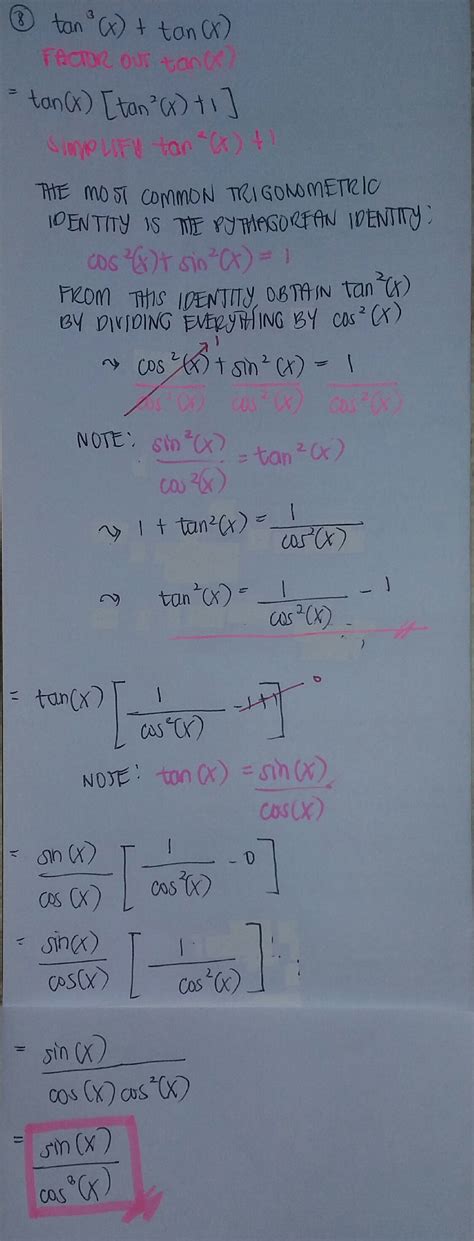 ⑧ tan³(x) + tan(x)
FACTOR OUT tan(x)
= tan(x) [tan²(x) + 1]
SIMPLIFY tan²(x) + 1
THE MOST COMMON TRIGONOMETRIC
IDENTITY IS THE PYTHAGOREAN IDENTITY:
cos²(x) + sin²(x) = 1
FROM THIS IDENTITY, OBTAIN tan²(x)
BY DIVIDING EVERYTHING BY cos²(x)
1
⤳ cos²(x) + sin²(x) = 1
cos²(x) cos²(x) cos²(x)
NOTE: sin²(x) = tan²(x)
cos²(x)
⤳ 1 + tan²(x) = 1
cos²(x)
⤳ tan²(x) = 1 - 1
cos²(x)
= tan(x) [ 1 -1+1 ] 0
cos²(x)
NOTE: tan(x) = sin(x)
cos(x)
= sin(x) [ 1 - 0 ]
cos(x) cos²(x)
= sin(x) [ 1 ]
cos(x) cos²(x)
= sin(x)
cos(x) cos²(x)
= sin(x)
cos³(x)